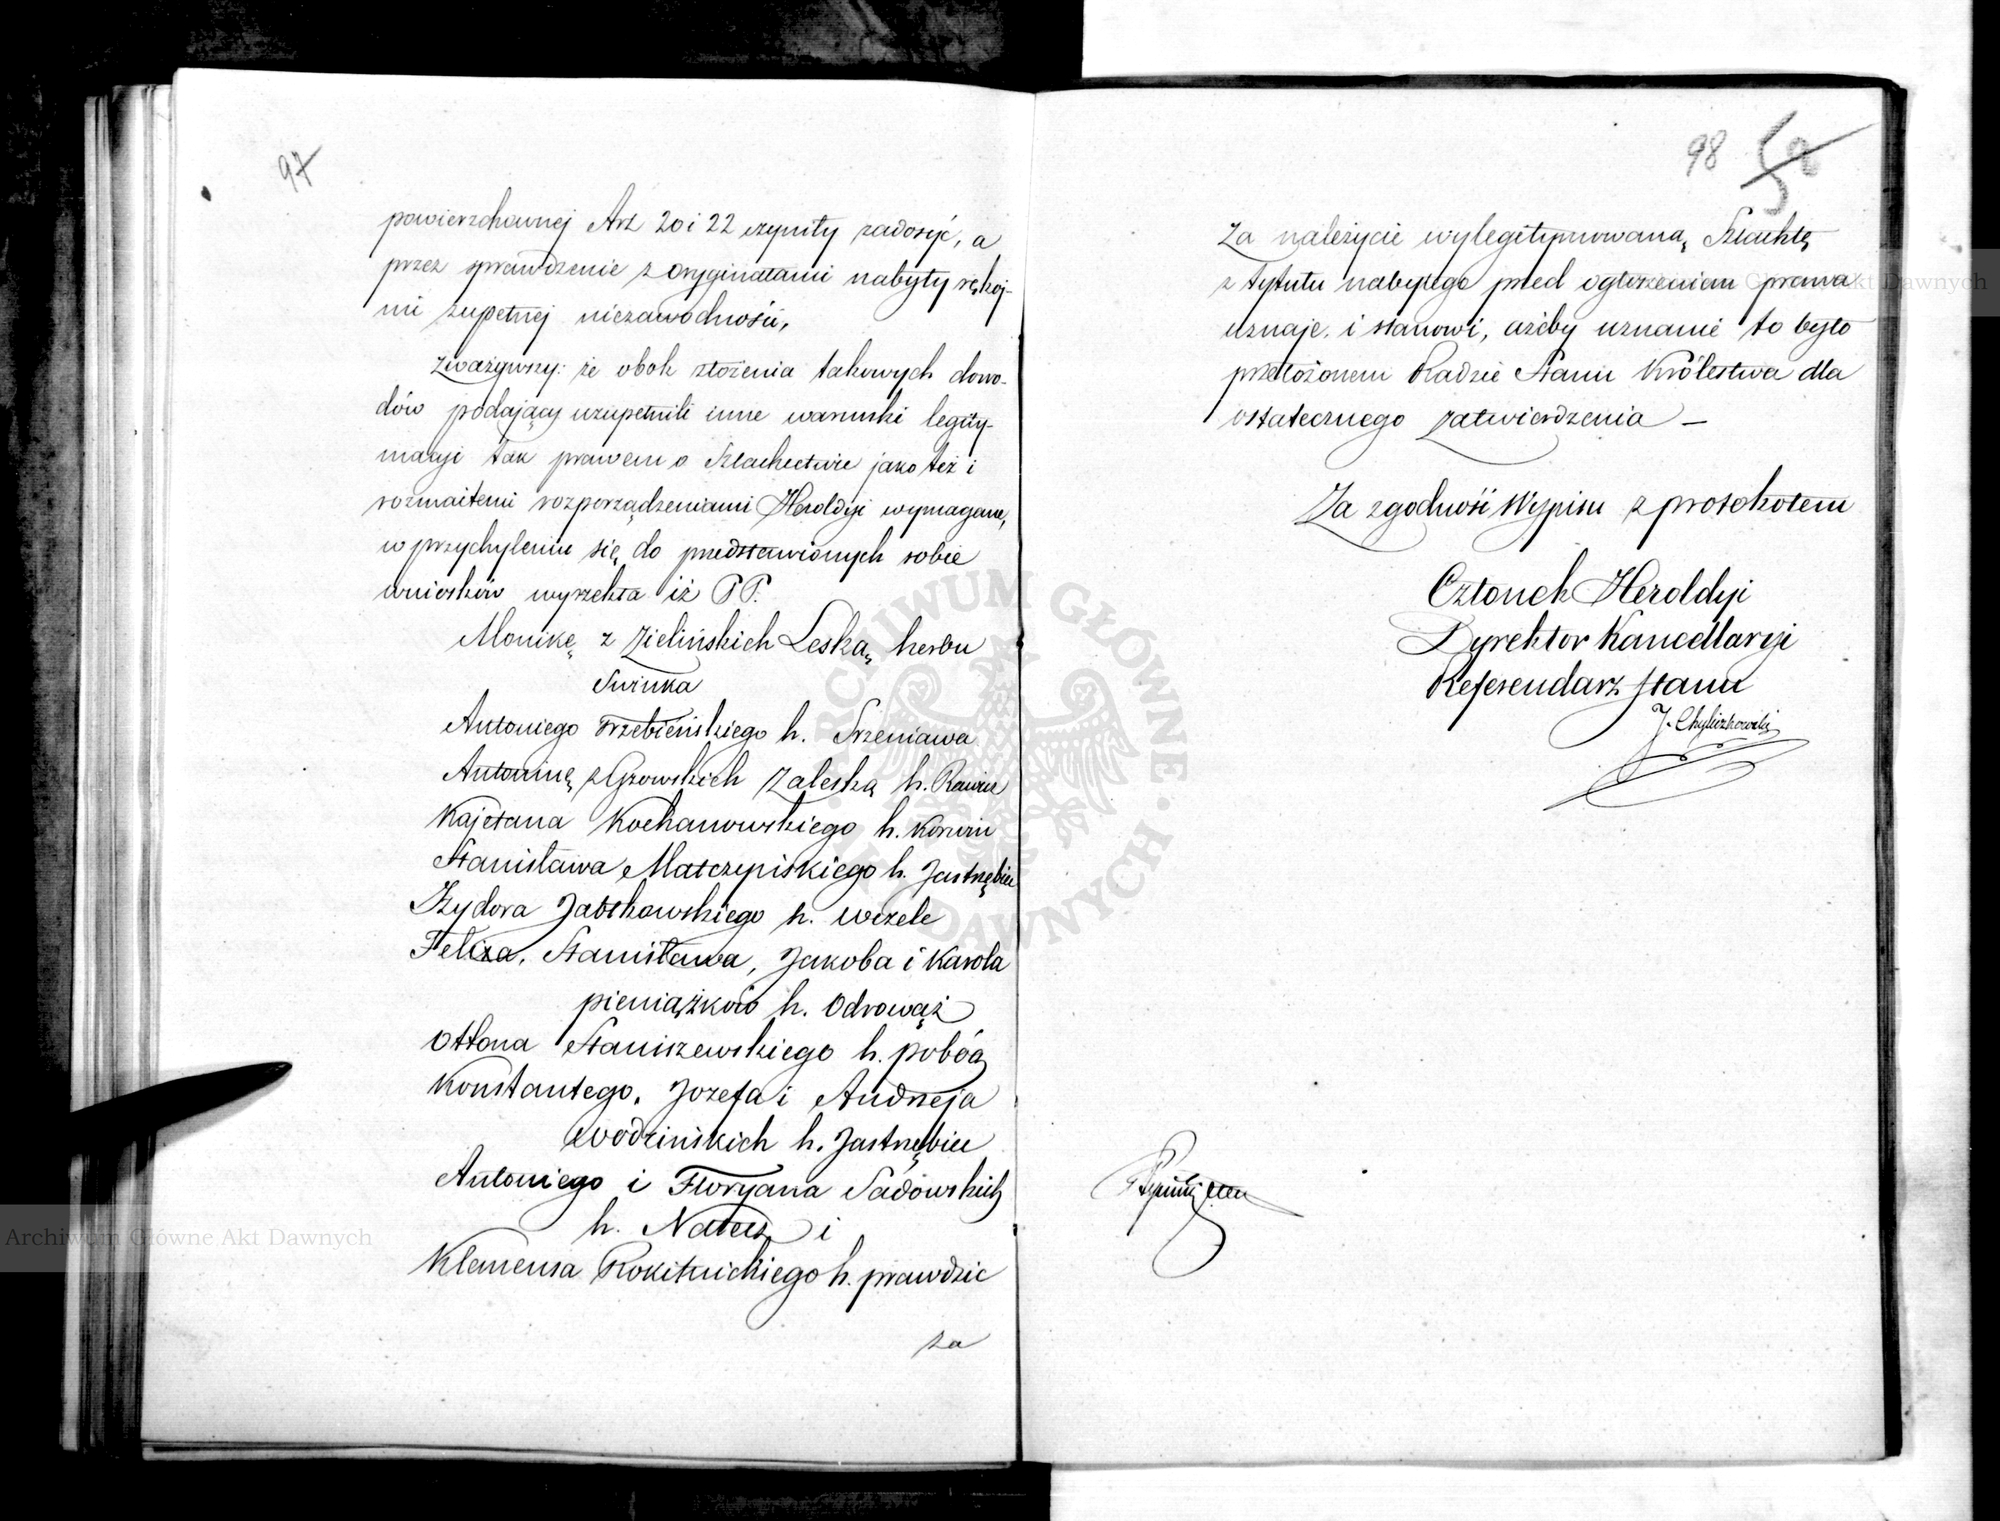 97
powierzchownej Art 20 i 22 czyniły zadosyć, a
przez sprawdzenie z oryginałami nabyły rękoj-
mi zupełnej niezawodności,
Zważywszy: że obok złożenia takowych dowo-
dów podający uzupełnili inne warunki legity-
macyi tak prawem o Szlachectwie jako też i
rozmaitemi rozporządzeniami Heroldyi wymagane,
w przychyleniu się do przedstawionych sobie
wniosków wyrzekła iż PP.
Monikę z Zielińskich Leską herbu
Świnka
Antoniego Trzebieńskiego h. Srzeniawa
Antoninę z Gzowskich Zaleską h. Rawicz
Kajetana Kochanowskiego h. Korwin
Stanisława Matczyńskiego h. Jastrzębiec
Izydora Jabłkowskiego h. Wczele
Felixa, Stanisława, Jakoba i Karola
pieniążków h. Odrowąż
Ottona Staniszewskiego h. pobóg
Konstantego, Jozefa i Andrzeja
Wodzińskich h. Jastrzębiec
Antoniego i Floryana Sadowskich
h. Nałęcz i
Klemensa Rokitnickiego h. prawdzic
za
98
52
Za należycie wylegitymowaną Szlachtę
z tytułu nabytego przed ogłoszeniem prawa
uznaje i stanowi, ażeby uznanie to było
przełożonem Radzie Stanu Królestwa dla
ostatecznego zatwierdzenia —
Za zgodność Wypisu z protokołem
Członek Heroldyi
Dyrektor Kancellaryi
Referendarz Stanu
J. Chyliczkowski
ARCHIWUM GŁÓWNE AKT DAWNYCH
Archiwum Główne Akt Dawnych
Archiwum Główne Akt Dawnych